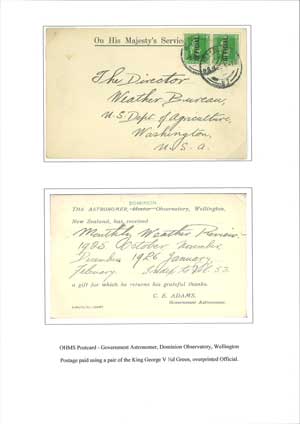 On His Majesty's Service
OFFICIAL OFFICIAL
The Director
Weather Bureau,
U.S. Dept of Agriculture,
Washington,
U.S.A.
DOMINION
THE ASTRONOMER, Hector Observatory, Wellington,
New Zealand, has received
Monthly Weather Review
1925 October November
December 1926 January,
February. Index to Vol 53
a gift for which he returns his grateful thanks.
C. E. ADAMS,
Government Astronomer.
OHMS Postcard - Government Astronomer, Dominion Observatory, Wellington
Postage paid using a pair of the King George V ½d Green, overprinted Official.